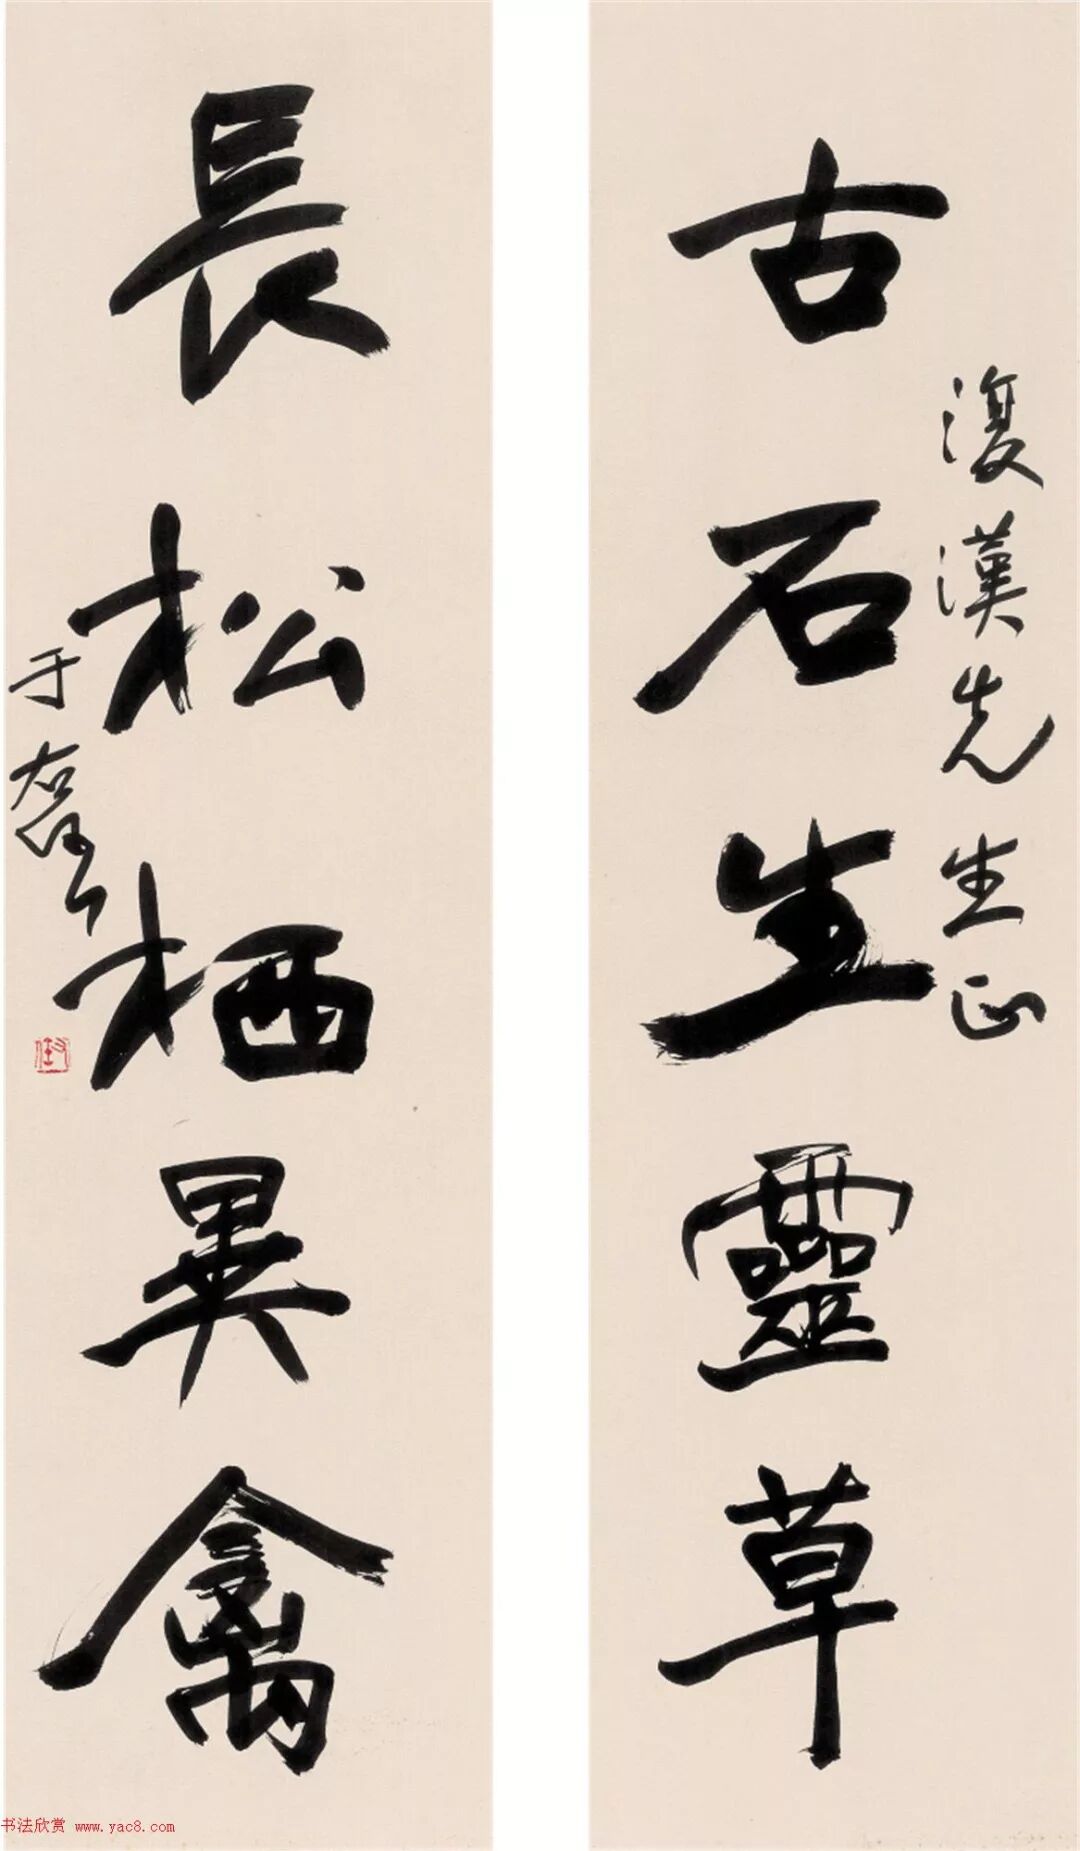 古石生靈草
復漢先生正
長松栖異禽
于右任
右任
书法欣赏 www.yac8.com